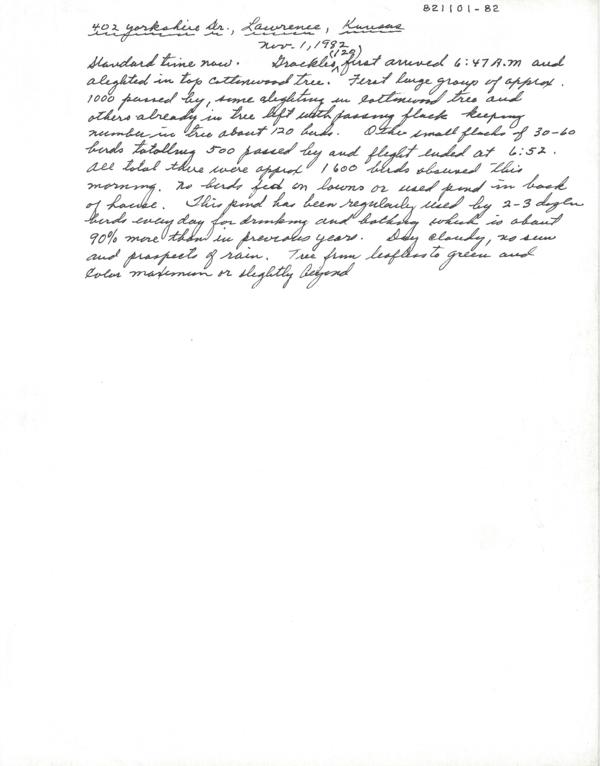 821101-82
402 Yorkshire Dr., Lawrence, Kansas
Nov. 1, 1982
Standard time now. Grackles (120) first arrived 6:47 A.M and
alighted in top cottonwood tree. First large group of approx.
1000 passed by, some alighting in cottonwood tree and
others already in tree left with passing flock keeping
number in tree about 120 birds. Other small flocks of 30-60
birds totalling 500 passed by and flight ended at 6:52.
All total there were approx 1600 birds observed this
morning. No birds fed on lawns or used pond in back
of house. This pond has been regularly used by 2-3 dozen
birds every day for drinking and bathing which is about
90% more than in previous years. Day cloudy, no sun
and prospects of rain. Tree from leafless to green and
color maximum or slightly beyond